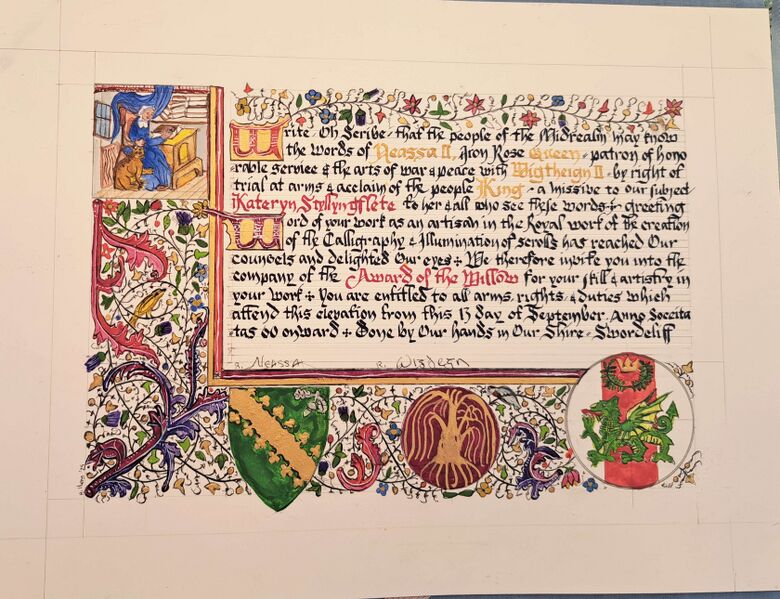 Write Oh Scribe - that the people of the Midrealm may know
the words of Neassa II, Iron Rose Queen - patron of hono
rable service & the arts of war & peace with Wigtheign II - by right of
trial at arms & acclaim of the people King - a missive to our subject
Kateryn Styllyngflete to her & all who see these words greeting
Word of your work as an artisan in the Royal work of the creation
of the Calligraphy & Illumination of scrolls has reached Our
councels and delighted Our eyes We therefore invite you into the
company of the Award of the Willow for your skill & artistry in
your work You are entitled to all arms, rights & duties which
attend this elevation from this 13 day of September, Anno Soccita
tas 60 onward Done by Our hands in Our Shire - Swordcliff
R. Neassa R.